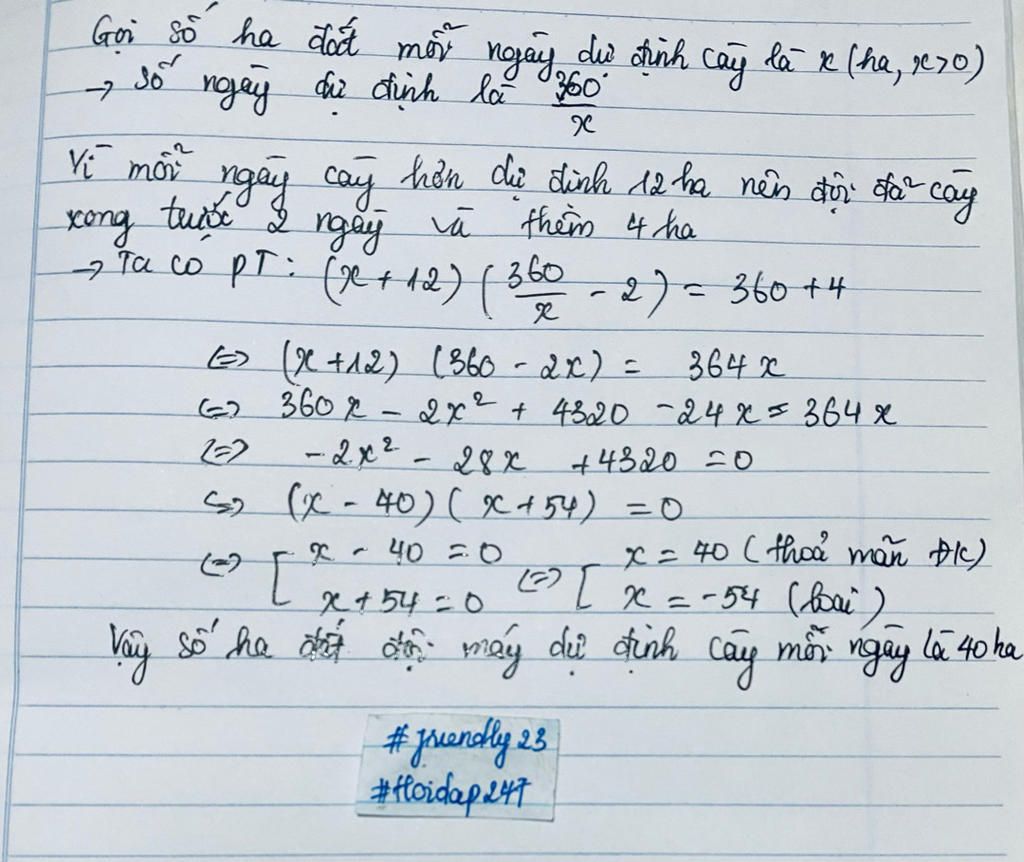 Gọi số ha đất mỗi ngày dự định cày là x (ha, x>0)
→ số ngày dự định là 360/x
Vì mỗi ngày cày hơn dự định 12 ha nên đội đã cày
xong trước 2 ngày và thêm 4 ha
→ Ta có PT: (x + 12) (360/x - 2) = 360 + 4
<=> (x + 12) (360 - 2x) = 364 x
<=> 360x - 2x² + 4320 - 24x = 364x
<=> -2x² - 28x + 4320 = 0
<=> (x - 40) ( x + 54) = 0
<=> [ x - 40 = 0 <=> [ x = 40 (thoả mãn ĐK)
x + 54 = 0 x = -54 (loại)
Vậy số ha đất đội máy dự định cày mỗi ngày là 40 ha
#friendly23
#Hoidap247